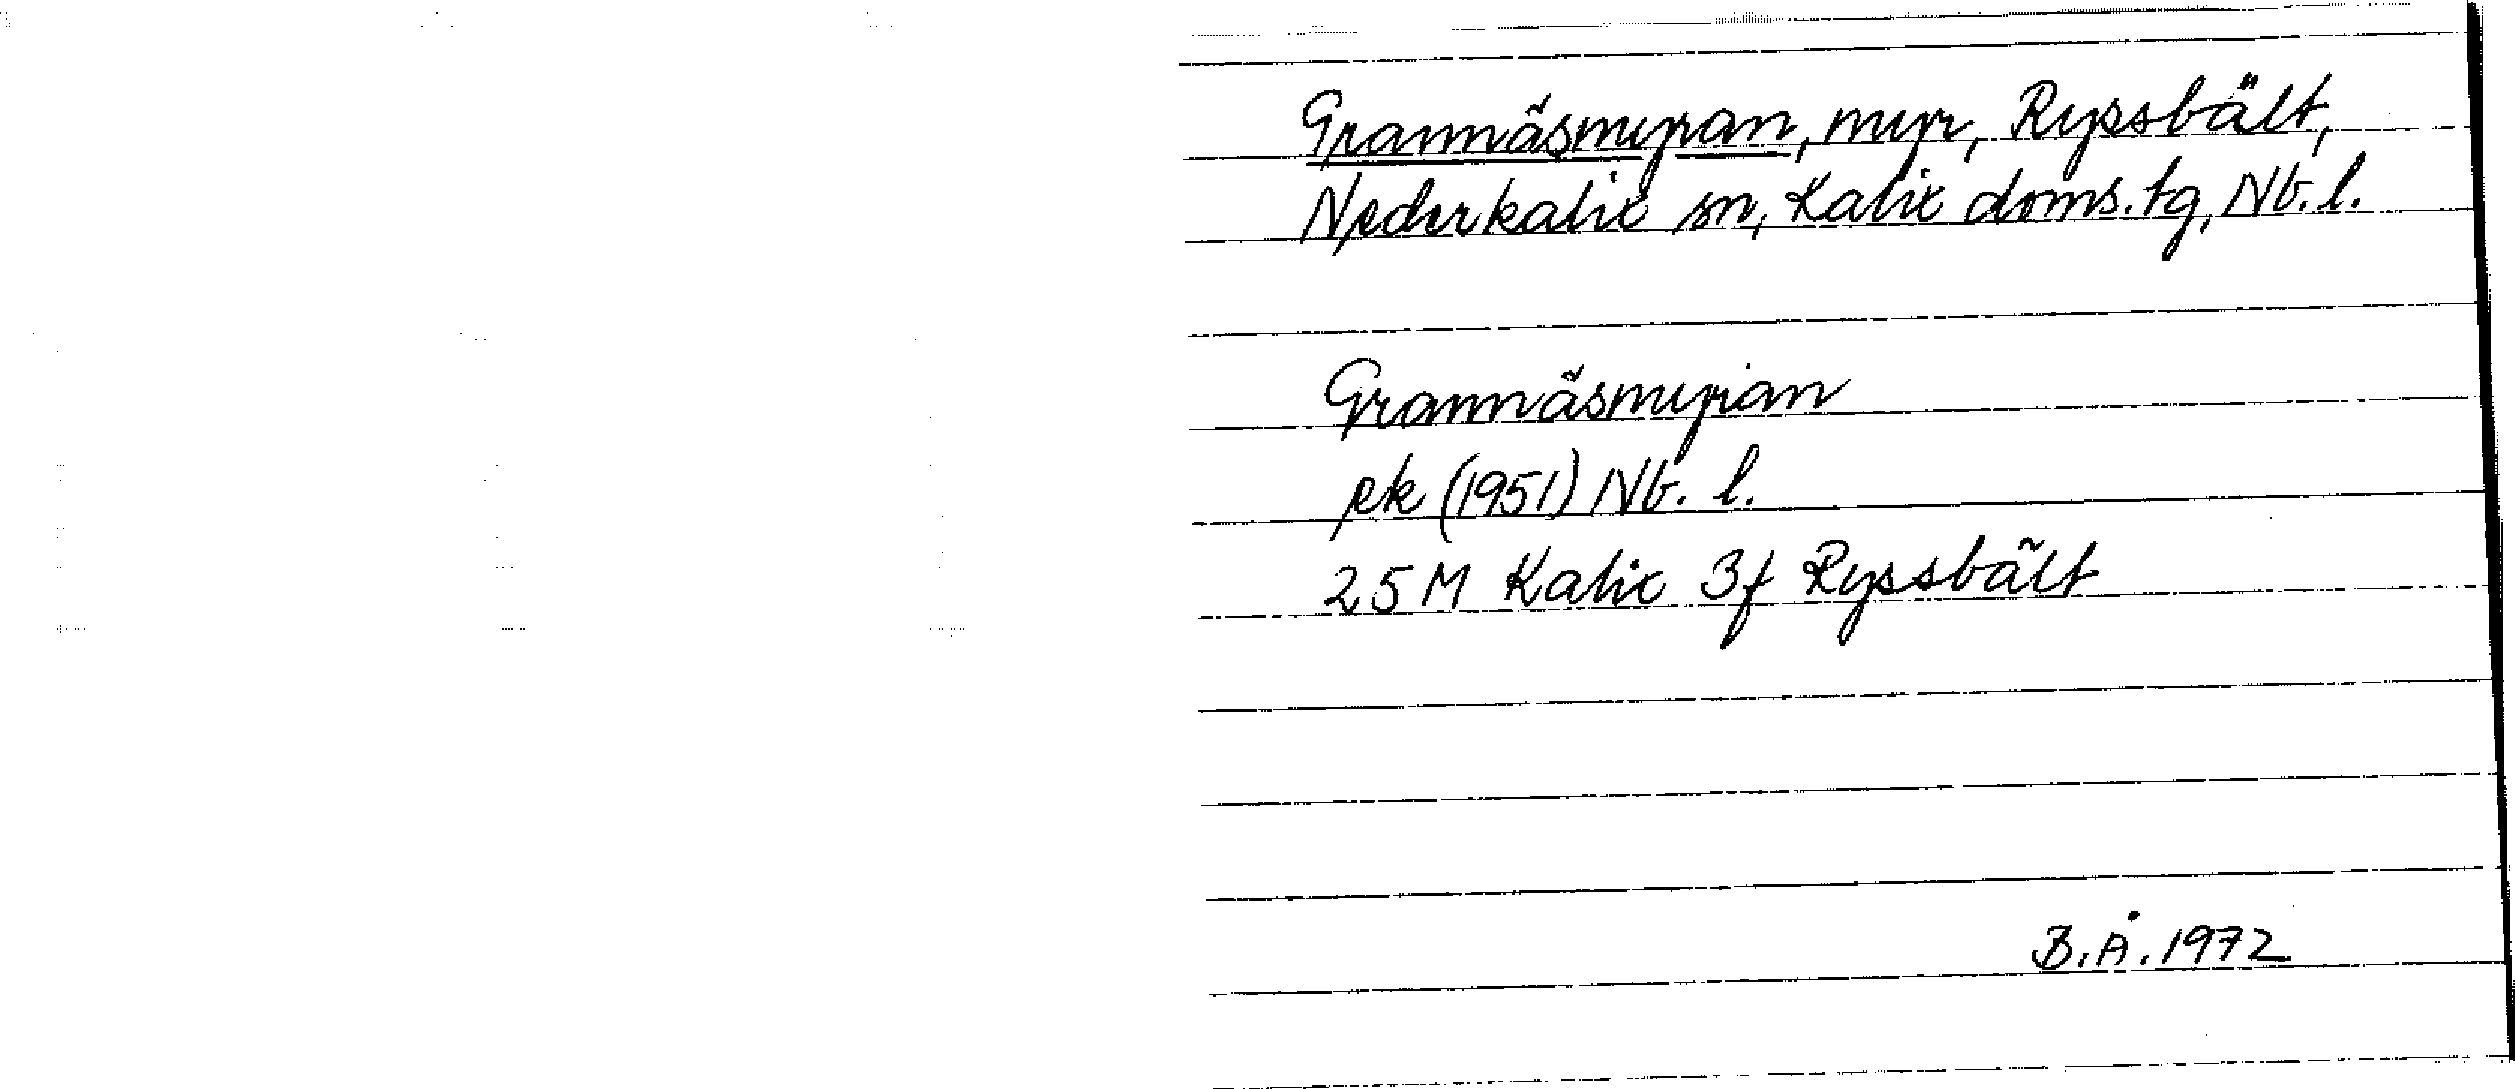 Grannäsmyran, myr, Ryssbält,
Nederkalix sn, Kalix doms.tg, Nb. l.
Grannäsmyran
ek (1951) Nb. l.
25 M Kalix 3f Ryssbält
B.Å. 1972